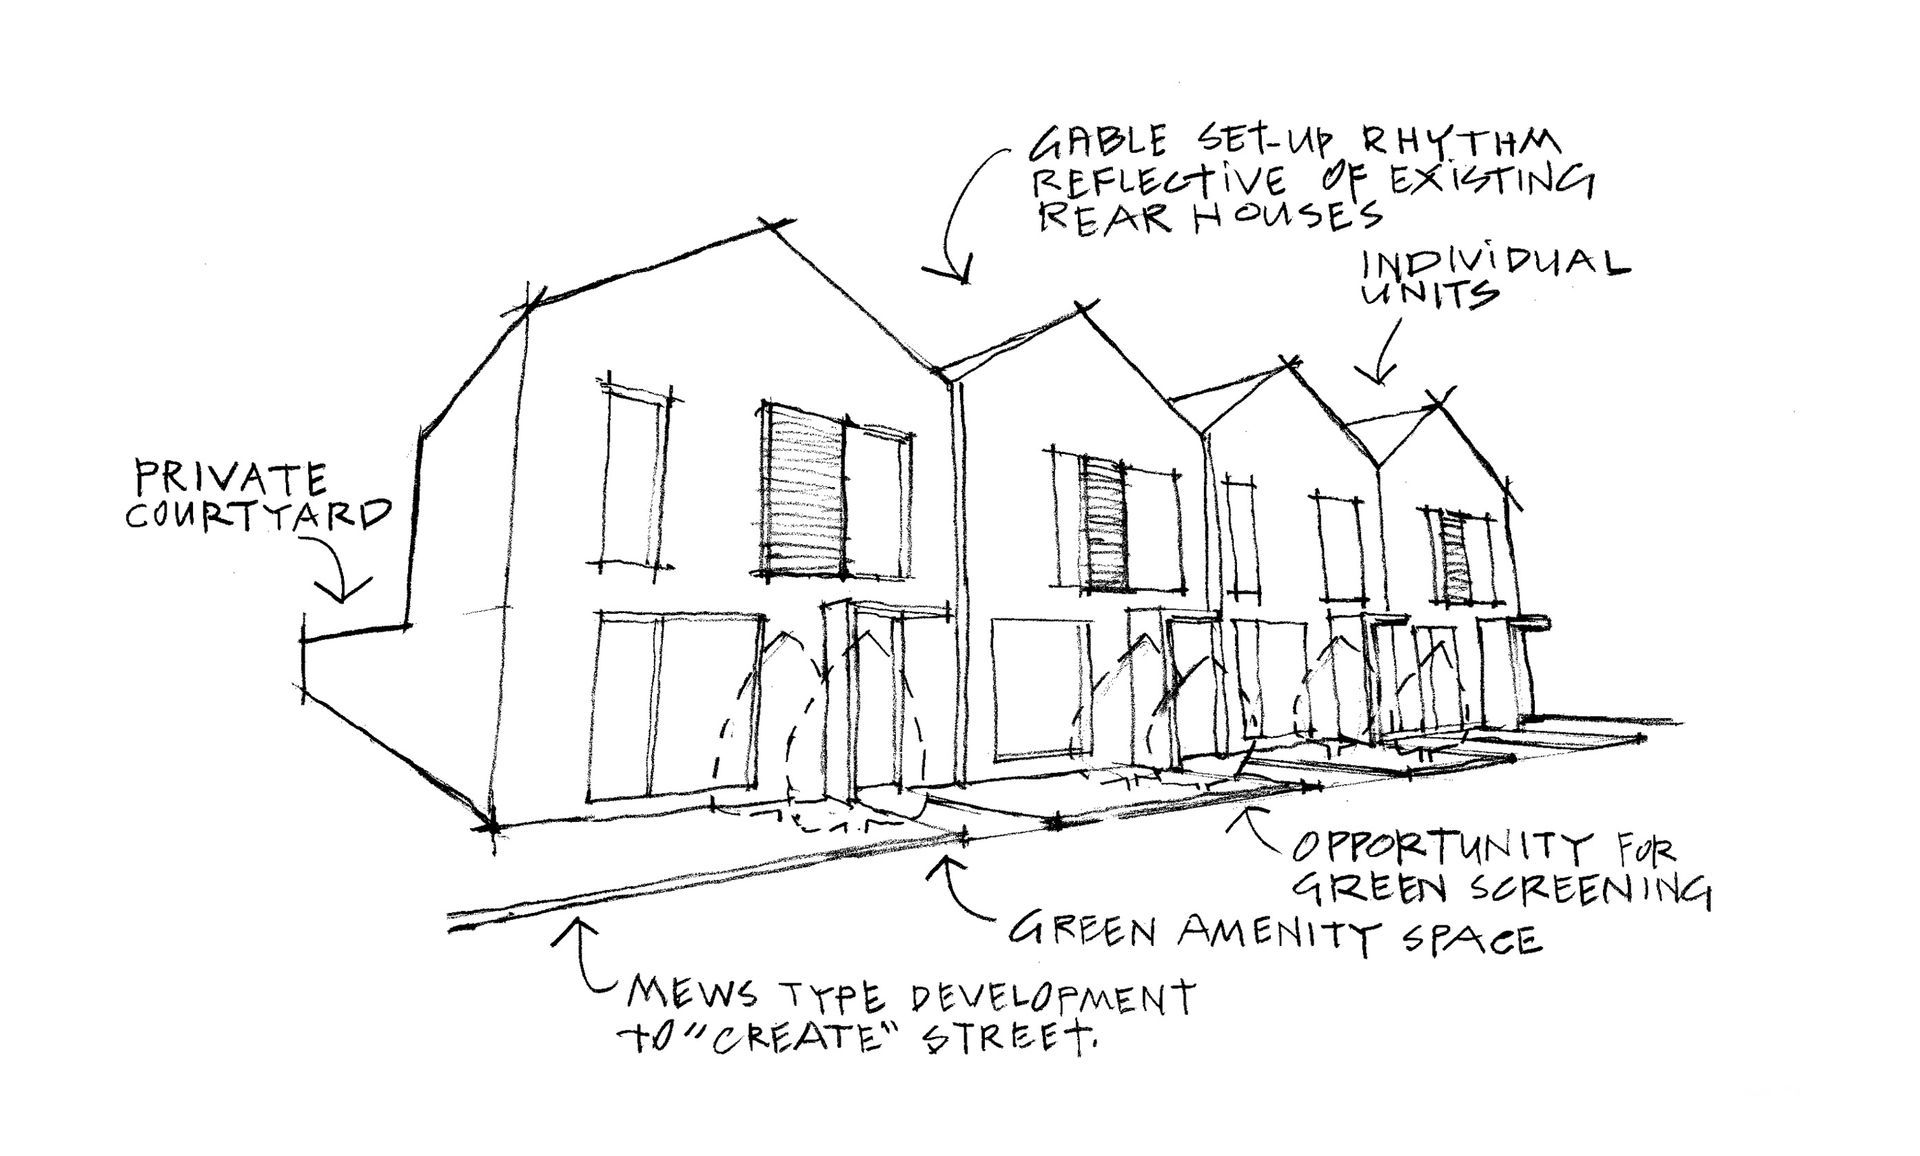 GABLE SET-UP RHYTHM
REFLECTIVE OF EXISTING
REAR HOUSES
INDIVIDUAL
UNITS
PRIVATE
COURTYARD
OPPORTUNITY FOR
GREEN SCREENING
GREEN AMENITY SPACE
MEWS TYPE DEVELOPMENT
TO "CREATE" STREET.